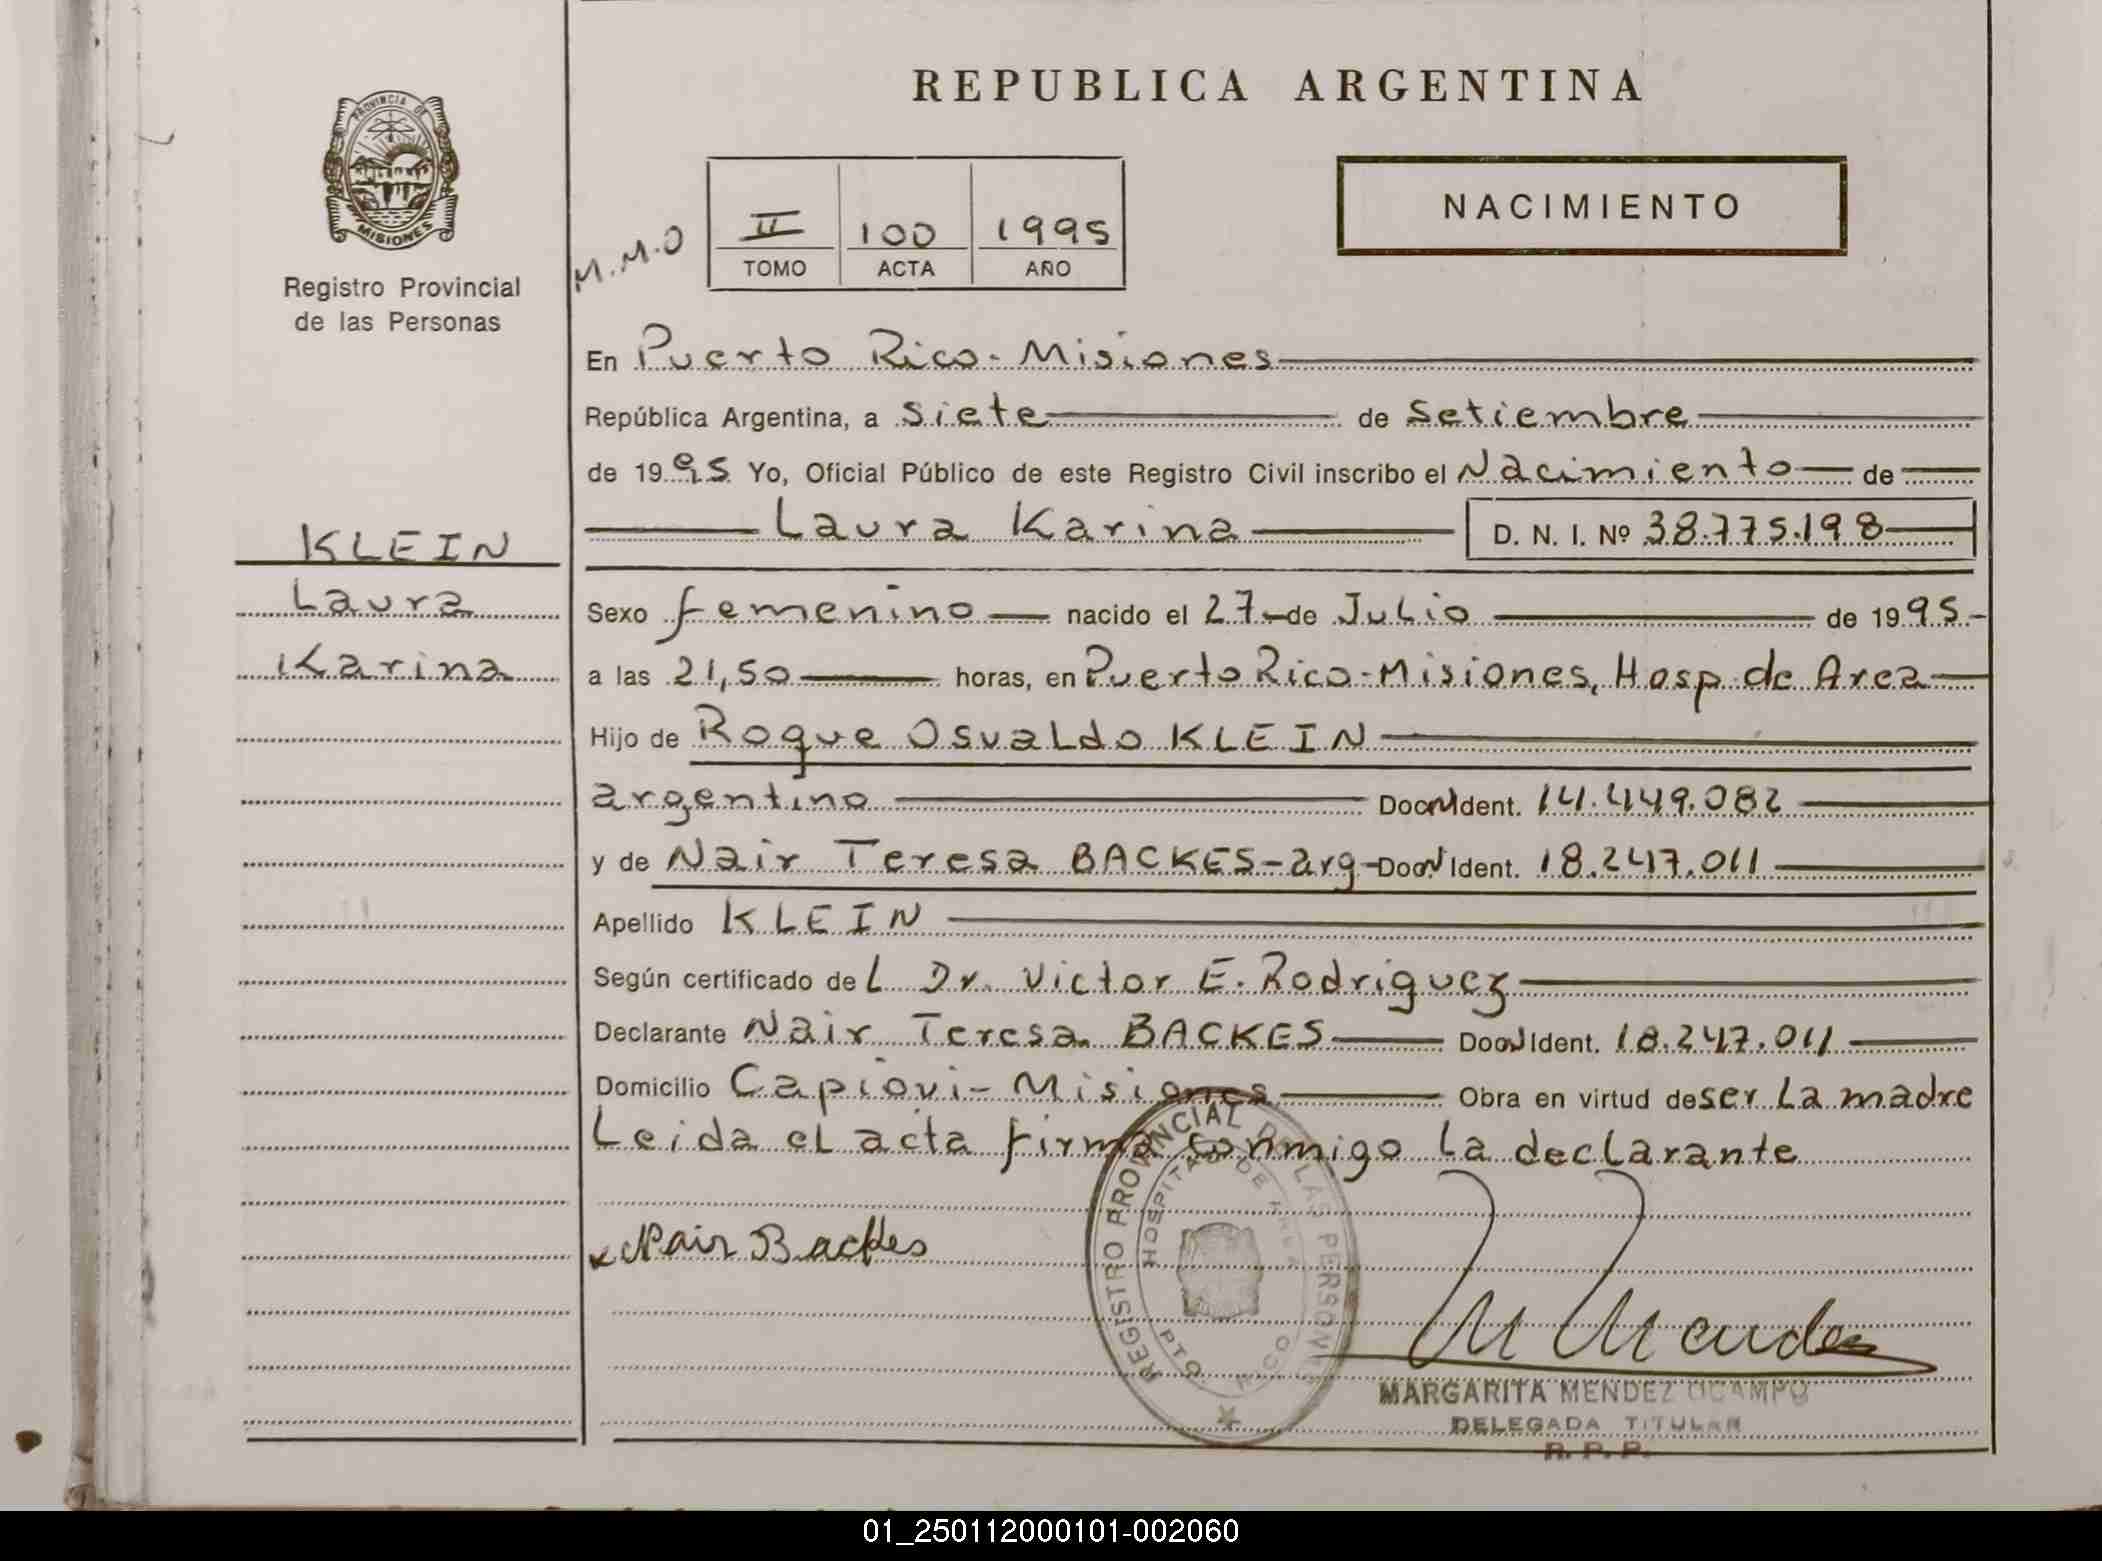 REPUBLICA ARGENTINA
PROVINCIA DE
MISIONES
Registro Provincial
de las Personas
NACIMIENTO
M.M.O
II 100 1995
TOMO ACTA AÑO
KLEIN
Laura
Karina
En Puerto Rico - Misiones
República Argentina, a siete de Setiembre
de 1995 Yo, Oficial Público de este Registro Civil inscribo el Nacimiento de
Laura Karina D. N. I. Nº 38.775.198
Sexo femenino nacido el 27 de Julio de 1995
a las 21,50 horas, en Puerto Rico - Misiones, Hosp. de Area
Hijo de Roque Osvaldo KLEIN
argentino Doc. Ident. 14.449.082
y de Nair Teresa BACKES - arg - Doc. Ident. 18.247.011
Apellido KLEIN
Según certificado del Dr. Victor E. Rodriguez
Declarante Nair Teresa BACKES Doc. Ident. 18.247.011
Domicilio Capiovi - Misiones Obra en virtud de ser La madre
Leida el acta firma conmigo la declarante
Nair Backes
REGISTRO PROVINCIAL DE LAS PERSONAS
HOSPITAL DE AREA
PTO RICO
M Mendez
MARGARITA MENDEZ OCAMPO
DELEGADA TITULAR
R. P. P.
01_250112000101-002060